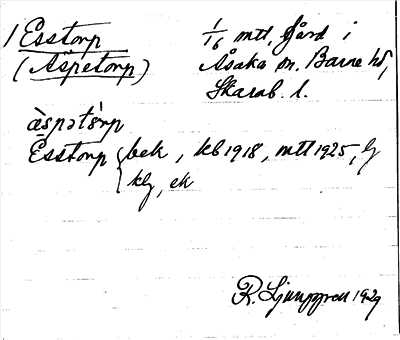 1 Esstorp 1/16 mtl, Gård i
(Äspetorp) Åsaka sn. Barne hd,
Skarab. l.
æ̀spətǿrp
Esstorp { bek, kb 1918, mtl 1925, lj
klj, ek
R. Ljunggren 1929